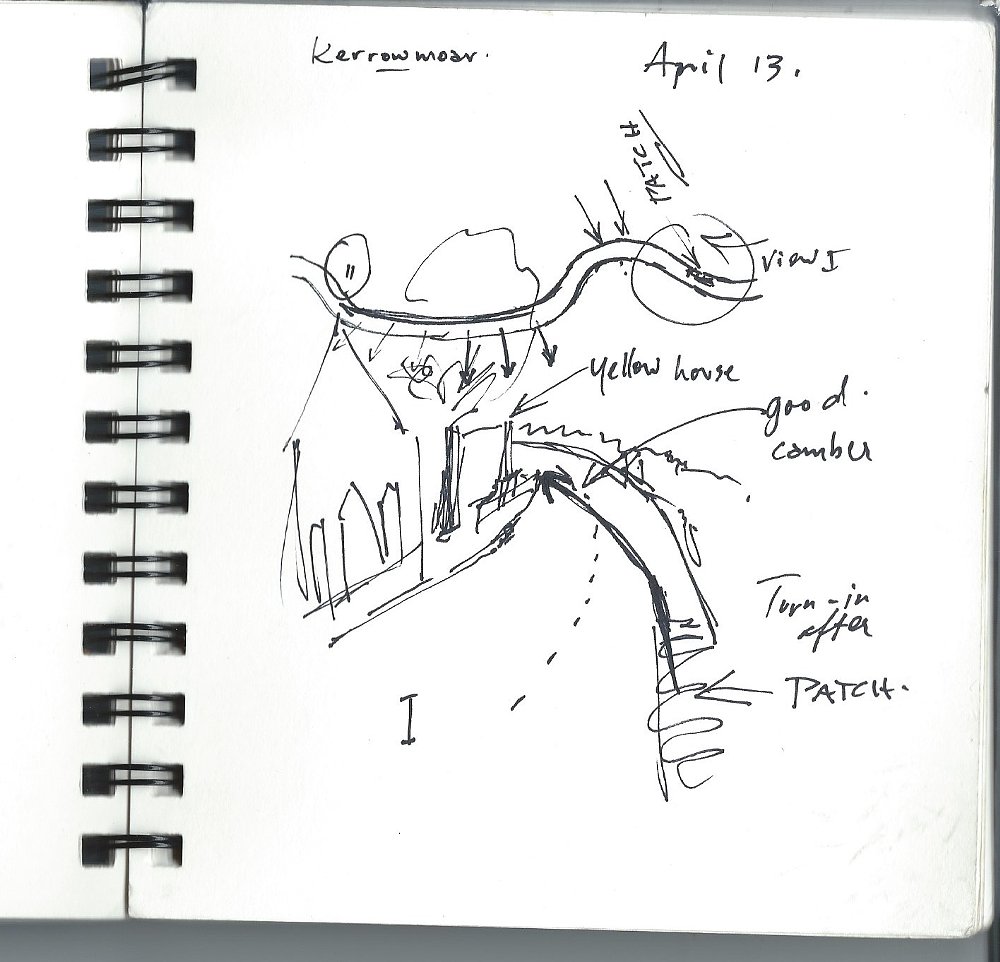 Kerrowmoar.
April 13.
PATCH
II
view I
yellow house
good.
camber
Turn-in
after
PATCH.
I